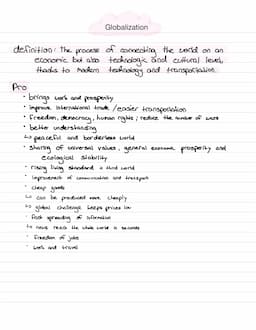 Globalization
definition: The process of connecting the world on an
economic but also technologic and cultural level,
thanks to modern technology and transportation.
Pro
• brings work and prosperity
• improve international trade / easier transportation
• freedom, democracy, human rights / reduce the number of wars
• better understanding
↳ peaceful and borderless world
• sharing of universal values, general economic prosperity and
ecological stability
• rising living standard in third world
• improvement of communication and transport
• cheap goods
↳ can be produced more cheaply
↳ global challenge keeps prices low
• fast spreading of information
↳ news reach the whole world in seconds
• freedom of jobs
• work and travel